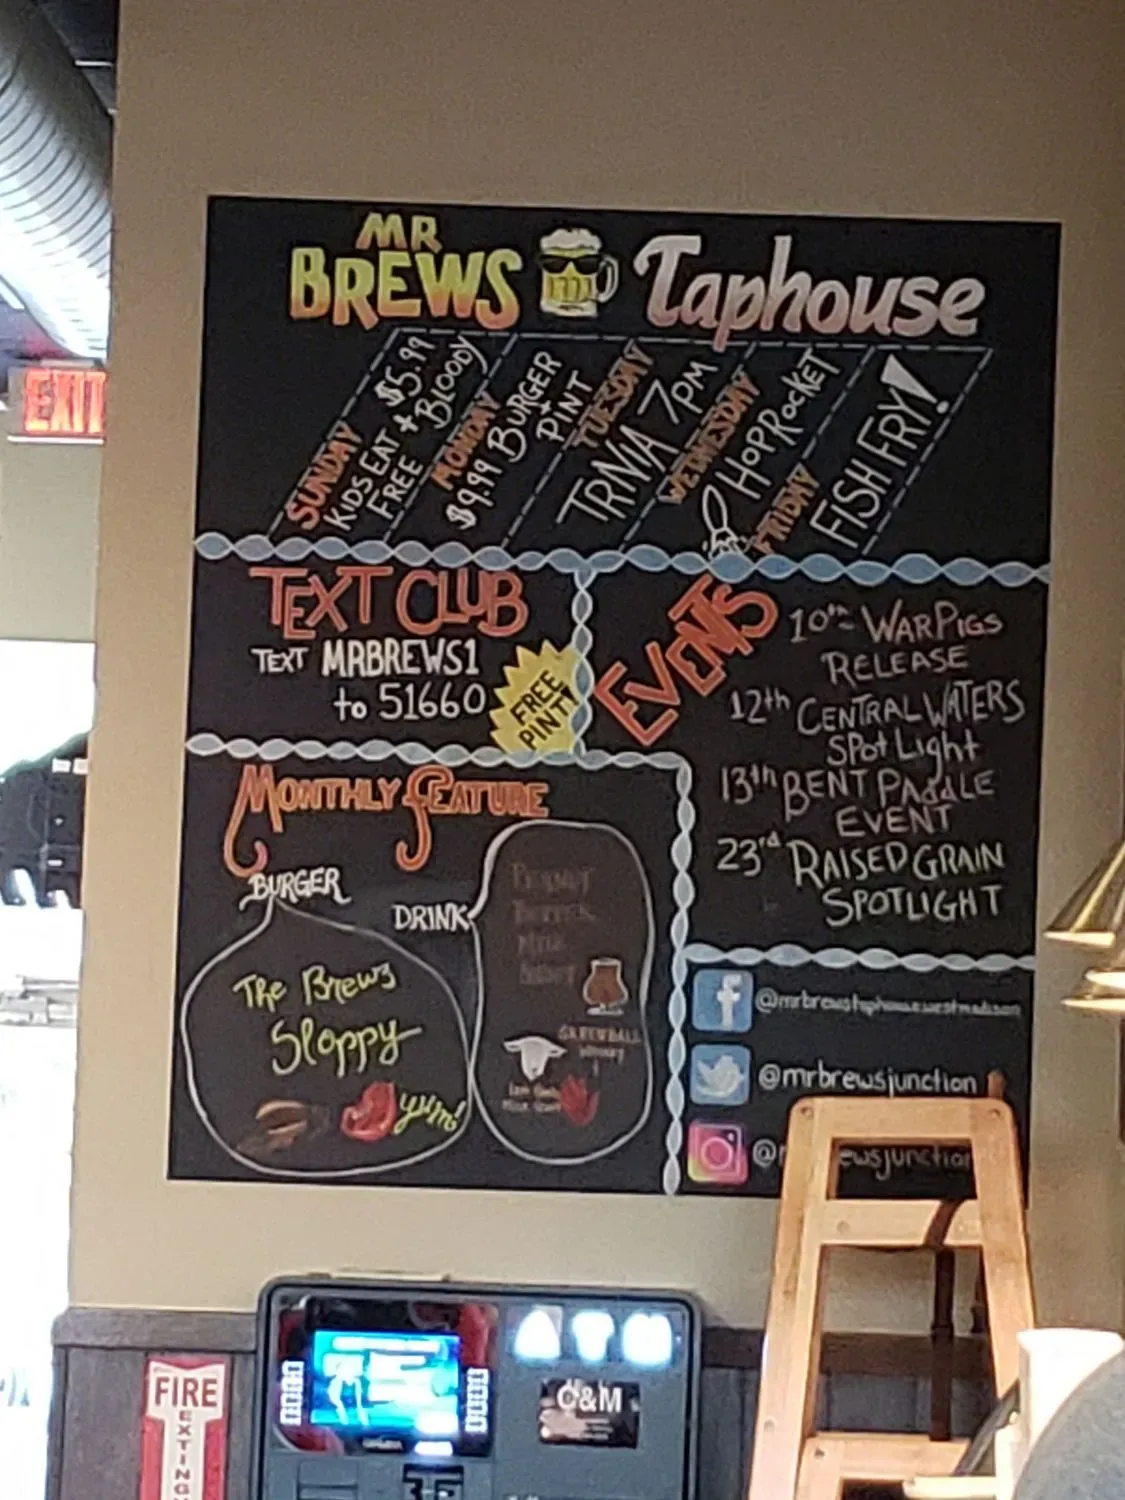 MR
BREWS Taphouse
SUNDAY
KIDS EAT
FREE
$5.99
+ BLOODY
MONDAY
$9.99 BURGER
+
PINT
TUESDAY
TRNIA 7PM
WEDNESDAY
HOPROCKET
FRIDAY
FISH FRY!
TEXT CLUB
TEXT MRBREWS1
to 51660
FREE
PINT!
EVENTS
10th WARPIGS
RELEASE
12th CENTRAL WATERS
SPOTLight
13th BENT PADDLE
EVENT
23rd RAISED GRAIN
SPOTLIGHT
MONTHLY FEATURE
BURGER
The Brews
Sloppy
yum!
DRINK
PEANUT
BUTTER
MILK
STOUT
@mrbrewstaphousewestmadison
@mrbrewsjunction
ewsjunction
EXIT
FIRE
EXTING
ATM
C&M